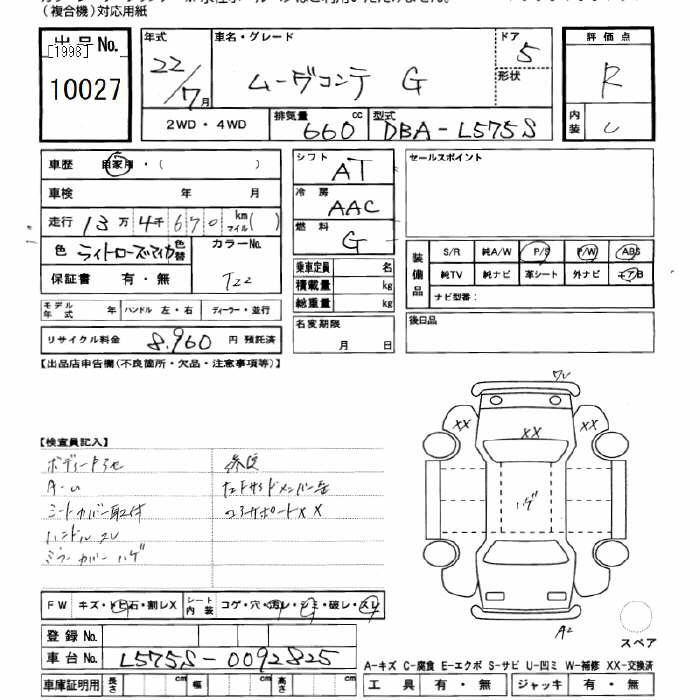 （複合機）対応用紙
出品No.
[1998]
10027
年式
22/7月
車名・グレード
ムーヴコンテ G
ドア
5
形状
2WD・4WD
排気量
660 cc
型式
DBA-L575S
評価点
R
内装
車歴 自家用・（ ）
車検 年 月
走行 13万4千670 km マイル（ ）
色 ライトローズマイカ 色替
カラーNo.
T22
保証書 有・無
モデル年式 年 ハンドル 左・右 ディーラー・並行
リサイクル料金 8,960 円 預託済
シフト
AT
冷房
AAC
燃料
G
乗車定員 名
積載量 kg
総重量 kg
名変期限
月 日
セールスポイント
装備品
S/R 純A/W P/S P/W ABS
純TV 純ナビ 革シート 外ナビ エアB
ナビ型番：
後日品
【出品店申告欄（不良箇所・欠品・注意事項等）】
【検査員記入】
シートカバー取付
ハンドルスレ
ミラーカバーハゲ
コアサポートXX
XX
XX
XX
ハゲ
A2
FW キズ・トビ石・割レX
シート内装 コゲ・穴・汚レ・シミ・破レ・スレ
登録No.
車台No. L575S-0092825
車庫証明用 長さ cm 幅 cm 高さ cm
スペア
A-キズ C-腐食 E-エクボ S-サビ U-凹ミ W-補修 XX-交換済
工具 有・無 ジャッキ 有・無